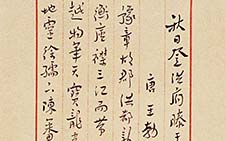 秋日登洪府滕王
唐 王勃
豫章故郡洪都新
衡廬襟三江而帶
越物華天寶龍光
地靈徐孺下陳蕃